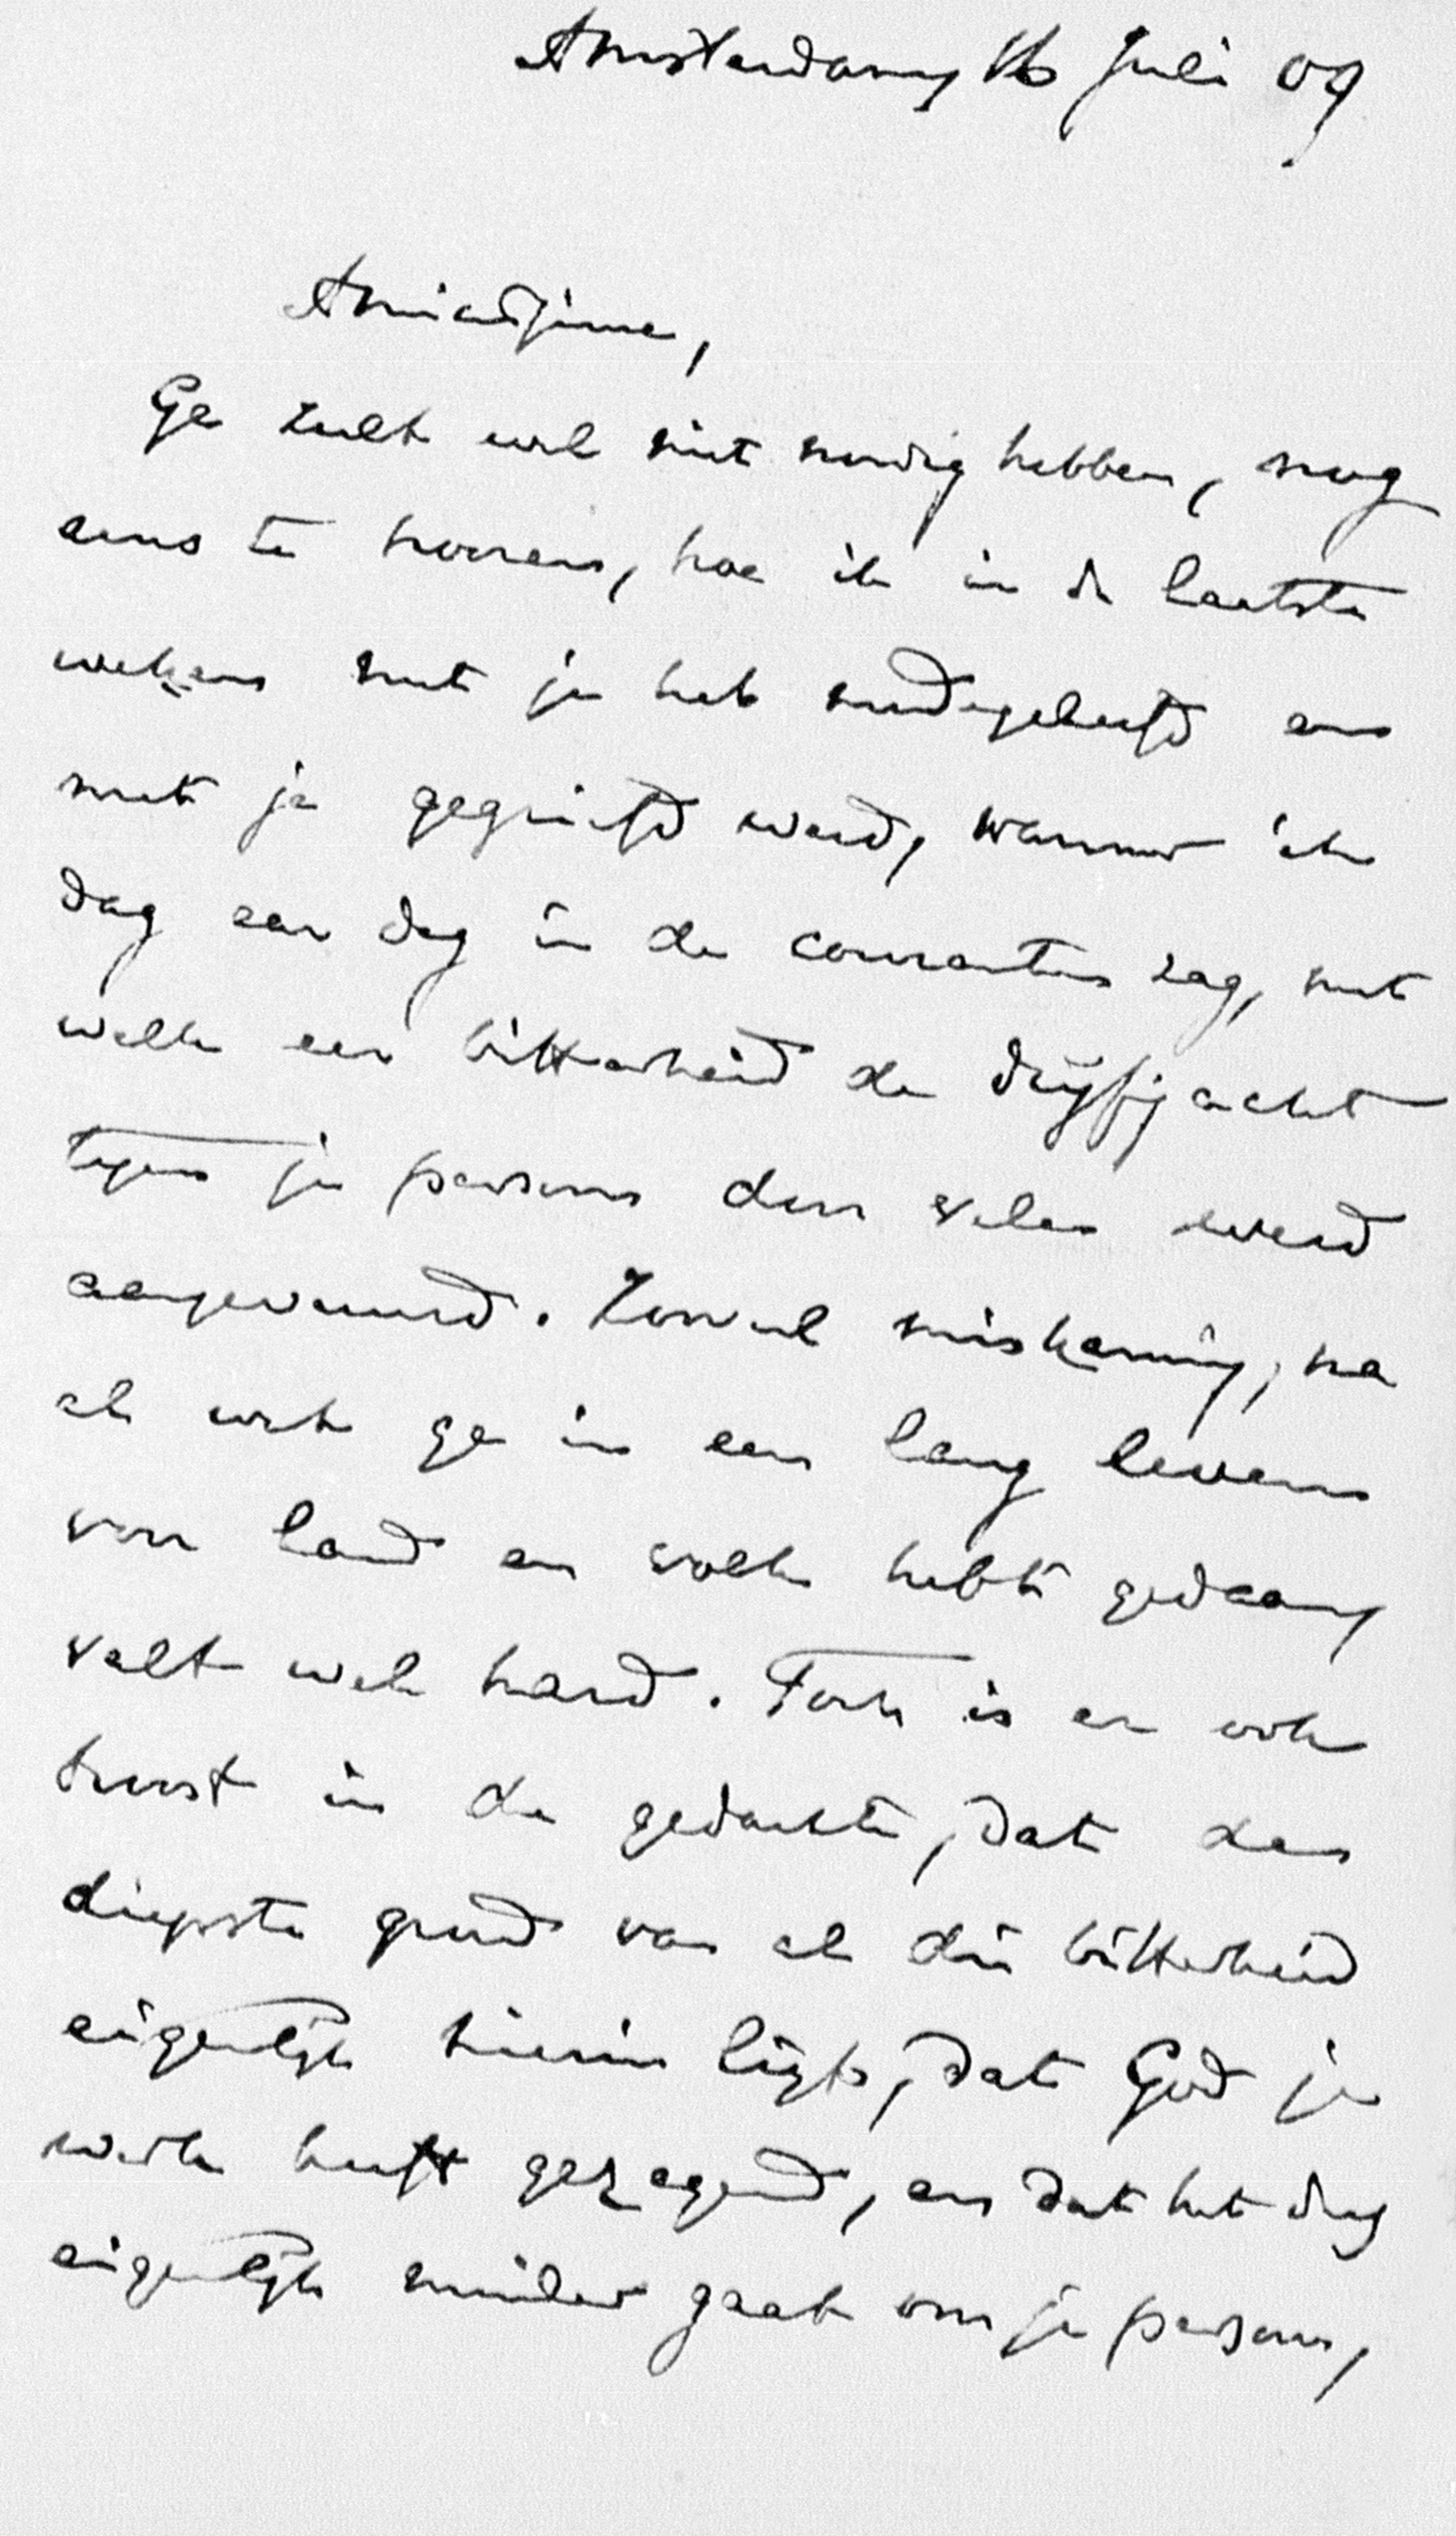 Amsterdam 16 Juli 09
Amicissime,
Ge zult wel niet noodig hebben, nog
eens te hooren, hoe ik in de laatste
weken met je heb medegeleefd en
met je gegriefd werd, wanneer ik
dag aan dag in de couranten zag, met
welk een bitterheid de drijfjacht
tegen je persoon door velen werd
aangevuurd. Zooveel miskenning, na
al wat ge in een lang leven
voor land en volk hebt gedaan,
valt wel hard. Toch is er ook
troost in de gedachte, dat de
diepste grond van al die bitterheid
eigenlijk hierin ligt, dat God je
werk heeft gezegend, en dat het dus
eigenlijk minder gaat om je persoon,